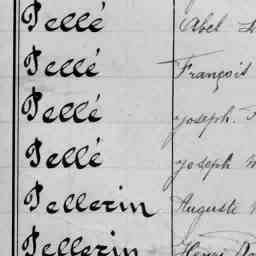 Pellé Abel
Pellé François
Pellé Joseph.
Pellé Joseph
Pellerin Auguste
Pellerin Henri